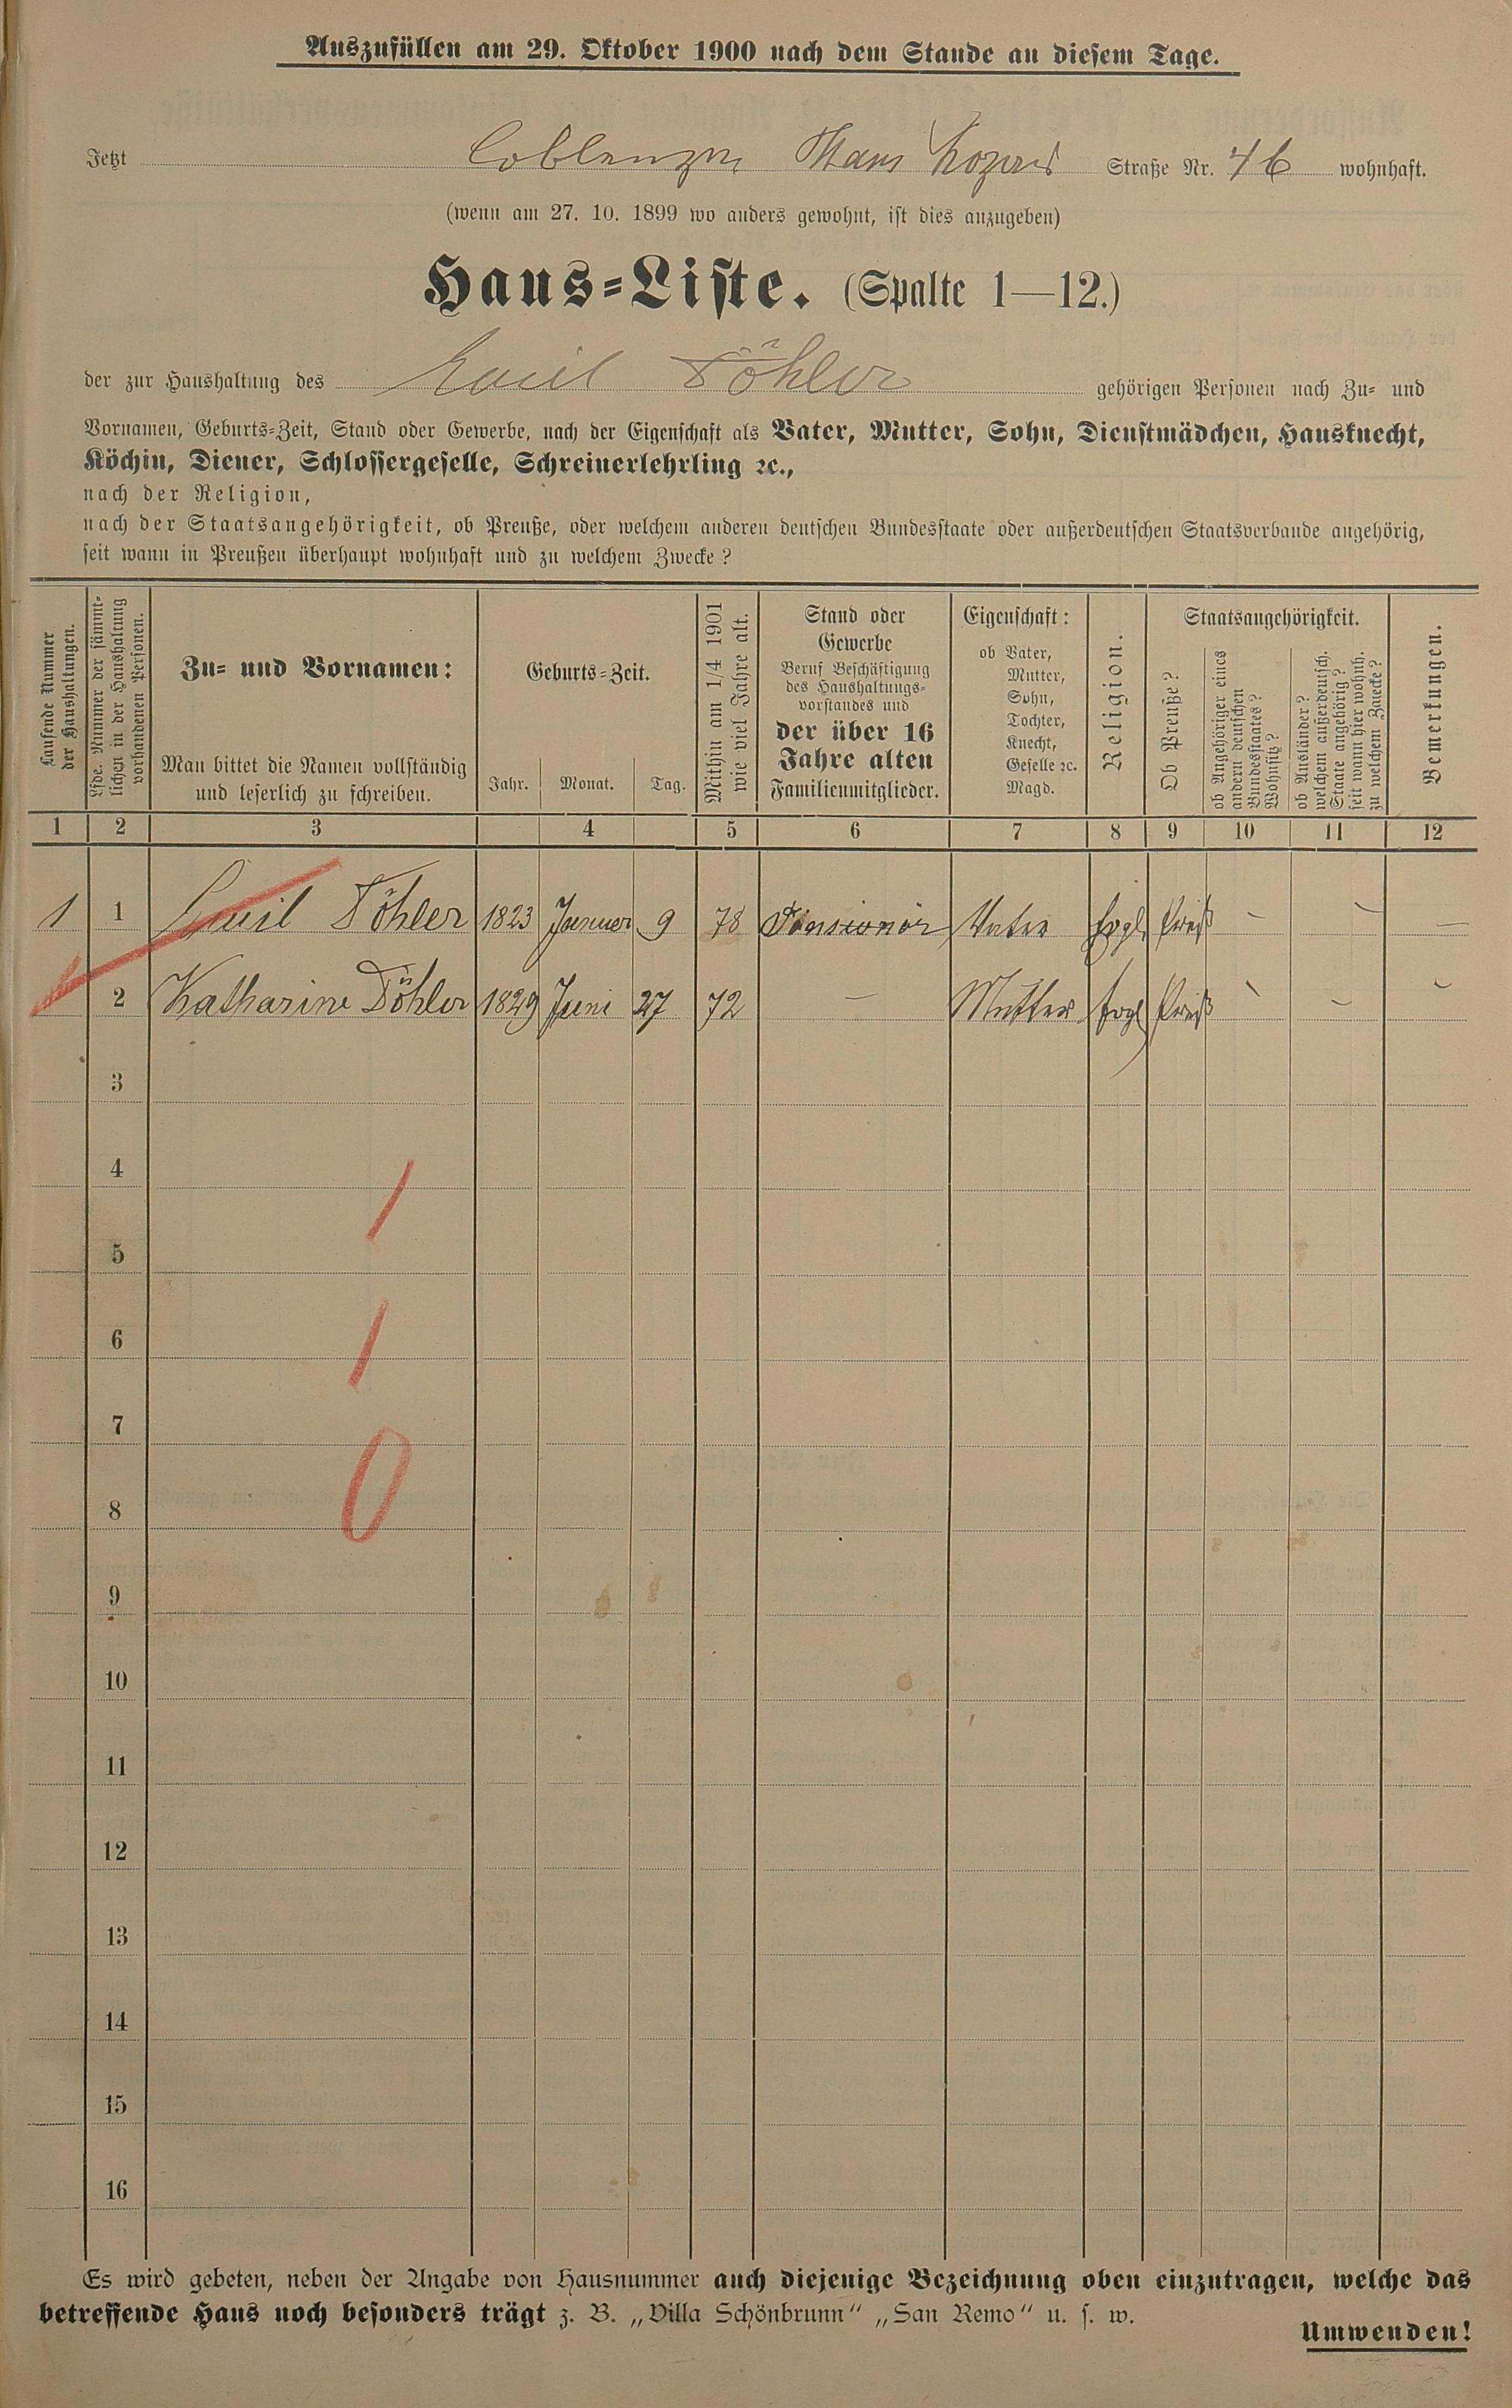 Auszufüllen am 29. Oktober 1900 nach dem Stande an diesem Tage.
Jetzt Coblenzer Straße Nr. 46 wohnhaft.
(wenn am 27. 10. 1899 wo anders gewohnt, ist dies anzugeben)
Haus-Liste. (Spalte 1—12.)
der zur Haushaltung des Emil Döhler gehörigen Personen nach Zu- und
Vornamen, Geburts-Zeit, Stand oder Gewerbe, nach der Eigenschaft als Vater, Mutter, Sohn, Dienstmädchen, Hausknecht,
Köchin, Diener, Schlossergeselle, Schreinerlehrling ꝛc.,
nach der Religion,
nach der Staatsangehörigkeit, ob Preuße, oder welchem anderen deutschen Bundesstaate oder außerdeutschen Staatsverbande angehörig,
seit wann in Preußen überhaupt wohnhaft und zu welchem Zwecke?
Laufende Nummer
der Haushaltungen.
Lfde. Nummer der sämmt-
lichen in der Haushaltung
vorhandenen Personen.
Zu- und Vornamen:
Man bittet die Namen vollständig
und leserlich zu schreiben.
Geburts-Zeit.
Jahr. Monat. Tag.
Mithin am 1/4 1901
wie viel Jahre alt.
Stand oder
Gewerbe
Beruf Beschäftigung
des Haushaltungs-
vorstandes und
der über 16
Jahre alten
Familienmitglieder.
Eigenschaft:
ob Vater,
Mutter,
Sohn,
Tochter,
Knecht,
Geselle ꝛc.
Magd.
Religion.
Staatsangehörigkeit.
Ob Preuße?
ob Angehöriger eines
andern deutschen
Bundesstaates?
Wohnsitz?
ob Ausländer?
welchem außerdeutsch.
Staate angehörig?
seit wann hier wohnh.
zu welchem Zwecke?
Bemerkungen.
1 2 3 4 5 6 7 8 9 10 11 12
1 1 Emil Döhler 1823 Januar 9 78 Pensionär Vater Evgl. Preuß – – –
2 Katharine Döhler 1829 Juni 27 72 – Mutter Evgl Preuß – – –
3
4
1
5
6
1
7
0
8
9
10
11
12
13
14
15
16
Es wird gebeten, neben der Angabe von Hausnummer auch diejenige Bezeichnung oben einzutragen, welche das
betreffende Haus noch besonders trägt z. B. „Villa Schönbrunn“ „San Remo“ u. s. w.
Umwenden!